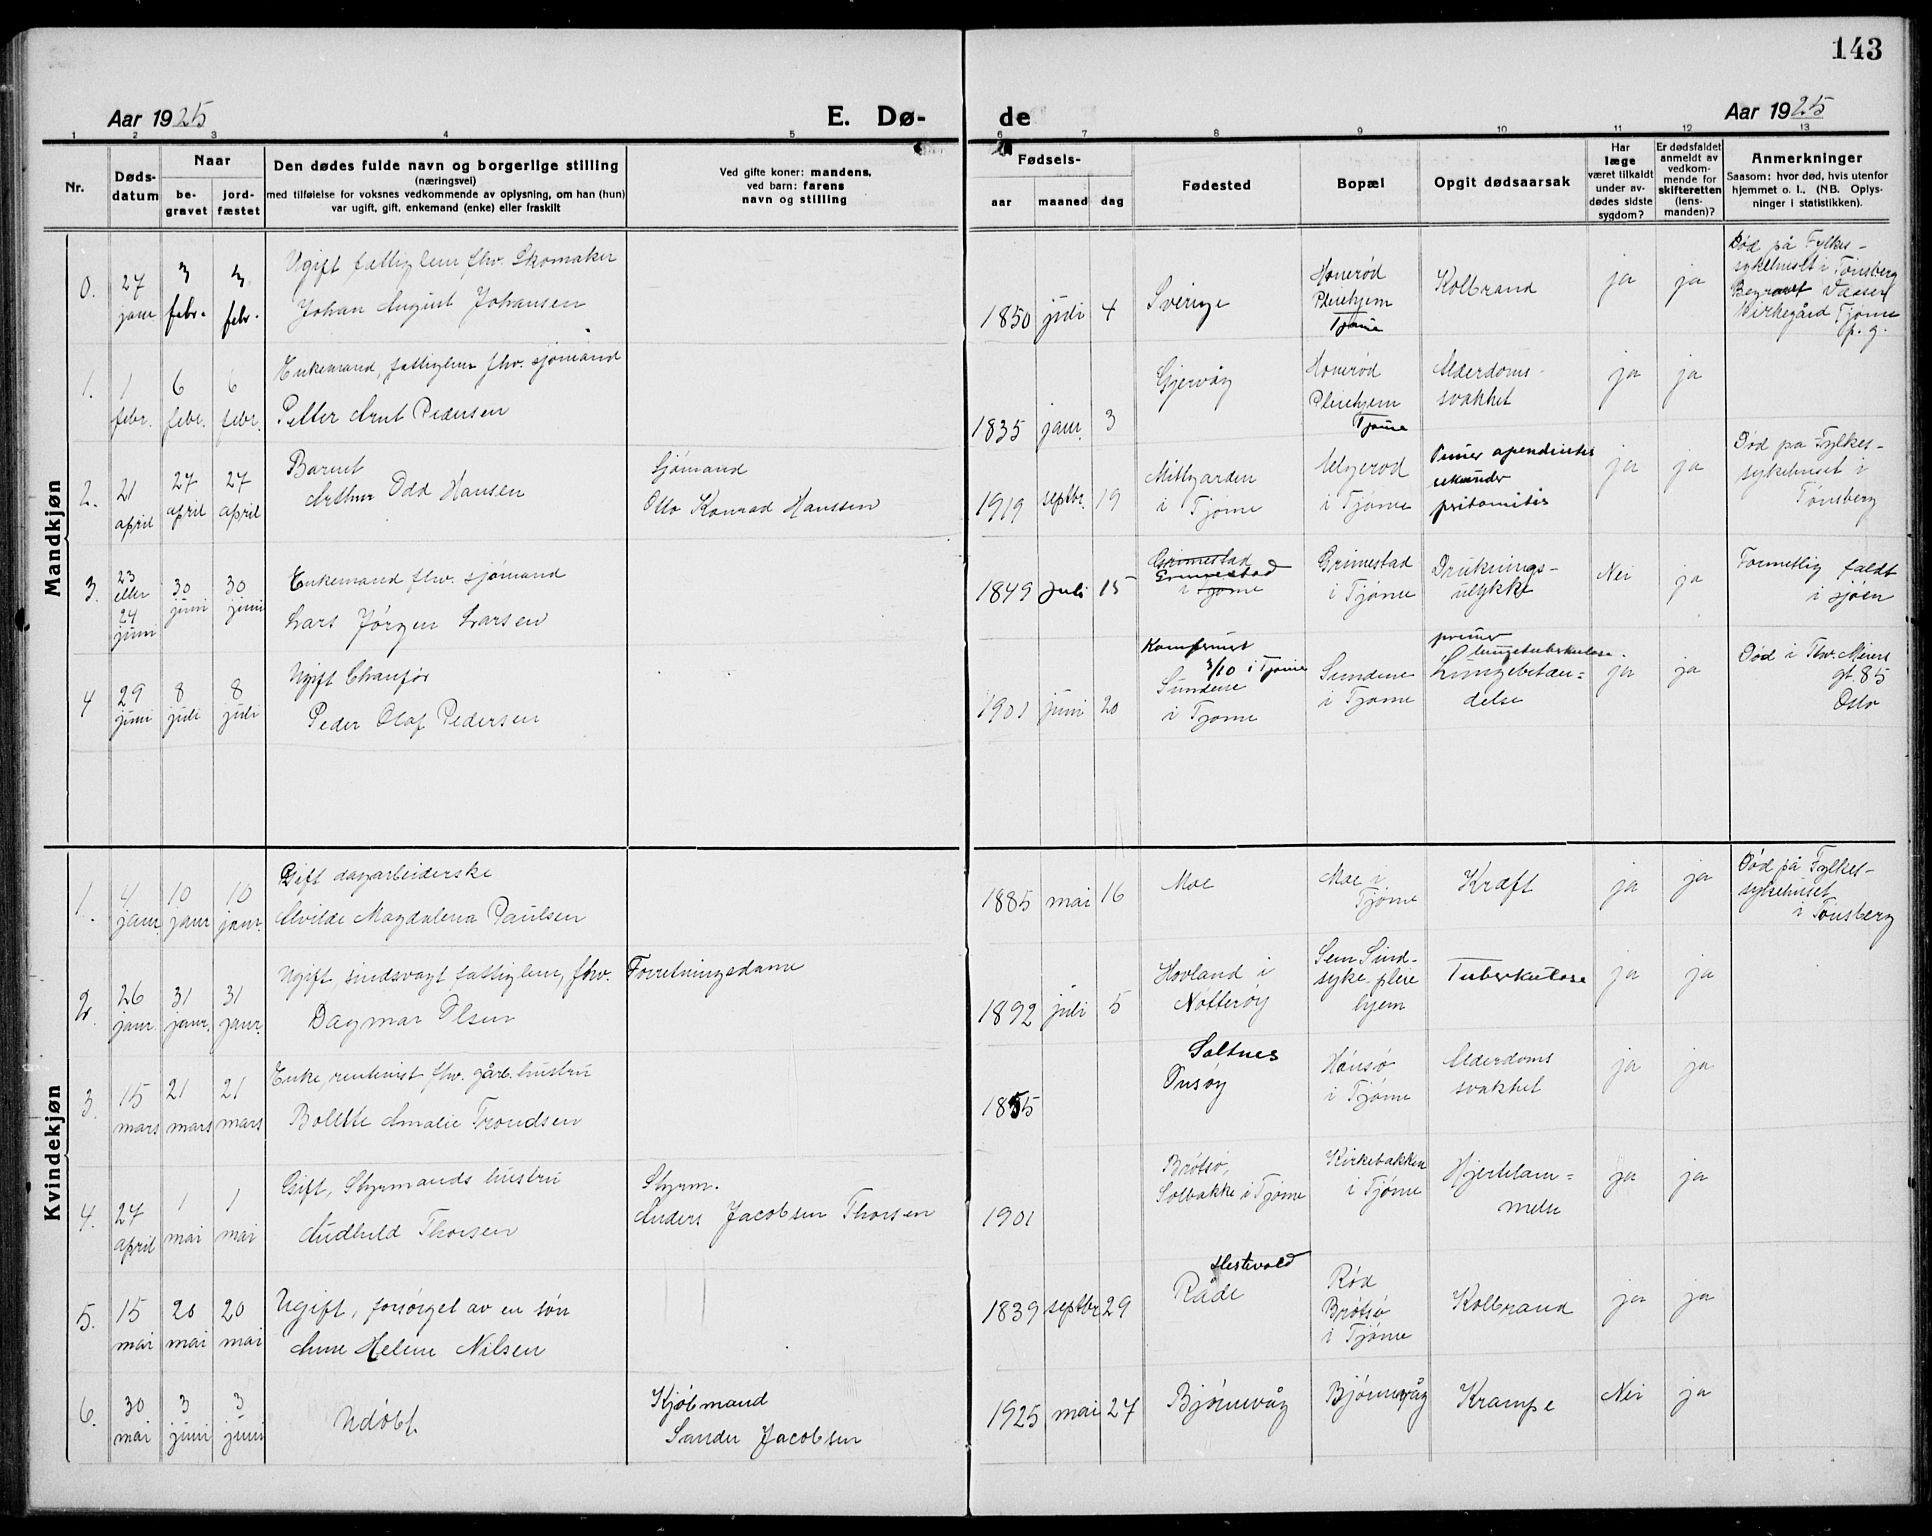 143
Aar 1925
E. Dø-
de
Aar 1925
1 2 3 4 5 6 7 8 9 10 11 12 13
Nr.
Døds-
datum
Naar
be-
gravet
jord-
fæstet
Den dødes fulde navn og borgerlige stilling
(næringsvei)
med tilføielse for voksnes vedkommende av oplysning, om han (hun)
var ugift, gift, enkemand (enke) eller fraskilt
Ved gifte koner: mandens,
ved barn: farens
navn og stilling
Fødsels-
aar maaned dag
Fødested
Bopæl
Opgit dødsaarsak
Har
læge
været tilkaldt
under av-
dødes sidste
sygdom?
Er dødsfaldet
anmeldt av
vedkom-
mende for
skifteretten
(lens-
manden)?
Anmerkninger
Saasom: hvor død, hvis utenfor
hjemmet o. l., (NB. Oplys-
ninger i statistikken).
Mandkjøn
0.
27
janr
3
febr.
3
febr.
Ugift fattiglem, fhv. Skomaker
Johan August Johansen
1850 juli 4
Sverige
Honerød
Pleiehjem
Tjøme
Kolbrand
ja
ja
Død på Fylkes-
sykehuset i Tønsberg
Begravet Vasser
Kirkegård Tjøme
p. g.
1.
1
febr.
6
febr.
6
febr.
Enkemand, fattiglem fhv. sjømand
Petter Arnt Pedersen
1835 janr. 3
Gjervåg
Honerød
Pleiehjem
Tjøme
Alderdoms-
svakhet
ja
ja
2.
21
april
27
april
27
april
Barnet
Arthur Odd Hansen
Sjømand
Otto Konrad Hanssen
1919 septbr. 19
Mittgarden
i Tjøme
Elgerød
i Tjøme
Primer apendicites
sekunder
pritonitis
ja
ja
Død på Fylkes-
sykehuset i
Tønsberg
3.
23
eller
24
juni
30
juni
30
juni
Enkemand fhv. sjømand
Lars Jørgen Larsen
1849 juli 15
Grimestad
Grimestad
i Tjøme
Grimestad
i Tjøme
Druknings-
ulykke
Nei
ja
Formetlig faldt
i sjøen
4
29
juni
8
juli
8
juli
Ugift Chauför
Peder Olaf Pedersen
1901 juni 20
Konfirmert
3/10 i Tjøme
Sundene
i Tjøme
Sundene
i Tjøme
primer
lungetuberkulose.
Lungebetæn-
delse
ja
ja
Død i Thv. Meiers
gt. 85
Oslo
Kvindekjøn
1.
4
janr.
10
janr
10
janr.
Gift dagarbeiderske
Alvilde Magdalena Paulsen
1885 mai 16
Moe
Moe i
Tjøme
Kræft
ja
ja
Død på Fylkes-
sykehuset
i Tønsberg
2.
26
janr.
31
janr.
31
janr.
Ugift, sindsvagt fattiglem, fhv. Forretningsdame
Dagmar Olsen
1892 juli 5
Hovland i
Nøtterøy
Sem Sind-
syke pleie
hjem
Tuberkulose
ja
ja
3.
15
mars
21
mars
21
mars
Enke, rentenist fhv. gårb. hustru
Bolette Amalie Trondsen
1855
Saltnes
Onsøy
Hønsø
i Tjøme
Alderdoms
svakhet
ja
ja
4.
27
april
1
mai
1
mai
Gift, Styrmands hustru
Audhild Thorsen
Styrm.
Anders Jacobsen Thorsen
1901
Brøtsø,
Solbakke i Tjøme
Kirkebakken
i Tjøme
Hjertelam-
melse
ja
ja
5.
15
mai
20
mai
20
mai
Ugift, forsørget av en søn
Anne Helene Nilsen
1839 septbr 29
Hestevold
Råde
Rød
Brøtsø
i Tjøme
Kolbrand
ja
ja
6.
30
mai
3
juni
3
juni
Udøbt.
Kjøbmand
Sander Jacobsen
1925 mai 27
Bjørnevåg
Bjørnevåg
Krampe
Nei
ja